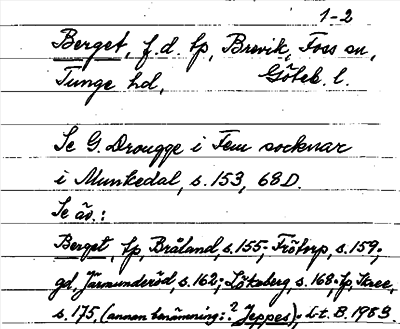 1-2
Berget, f.d. tp, Brevik, Foss sn,
Tunge hd, Göteb. l.
Se G. Drougge i Fem socknar
i Munkedal, s. 153, 68D.
Se äv.:
Berget, tp, Bråland, s. 155; Frötorp, s. 159;
gd, Järmunderöd, s. 162; Lökeberg, s. 168; tp,
s. 175, (annan benämning: ? Jeppes); L-t. B. 1983.